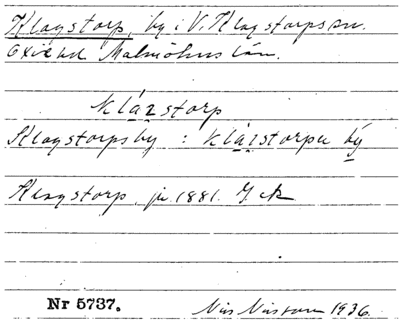 Klagstorp, by i V. Klagstorps sn.
Oxie hd Malmöhus län.
klagstorp
Klagstorpsby : klagstorpa by
Klagstorp, 1881.
Nr 5737. Nils Nilsson 1936.